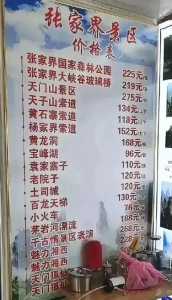 张家界景区
价格表
张家界国家森林公园 225元/
张家界大峡谷玻璃桥 219元/
天门山景区 275元/
天子山索道 134元/
黄石寨索道 118元/
杨家界索道 152元/
黄龙洞 168元/
宝峰湖 96元/
袁家寨子 110元/
老院子 120元/
土司城 120元/
百龙天梯 130元/
小火车 76元
茅岩河漂流 188元
千古情景区表演
魅力湘西
魅力湘西
天门狐仙
天门狐仙